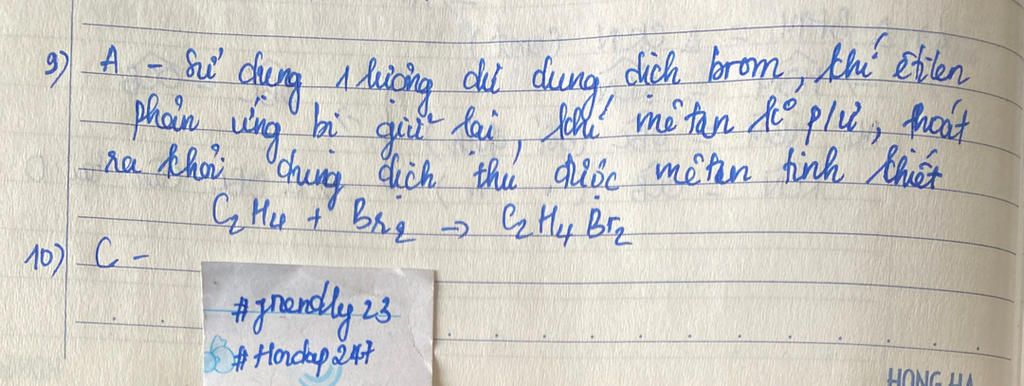 9) A - Sử dụng 1 lượng dư dung dịch brom, khí êtilen
phản ứng bị giữ lại, khí mêtan ko p/ư, thoát
ra khỏi dung dịch thu được mêtan tinh khiết
C2H4 + Br2 → C2H4Br2
10) C -
#friendly23
#Hoidap247
HONG HA